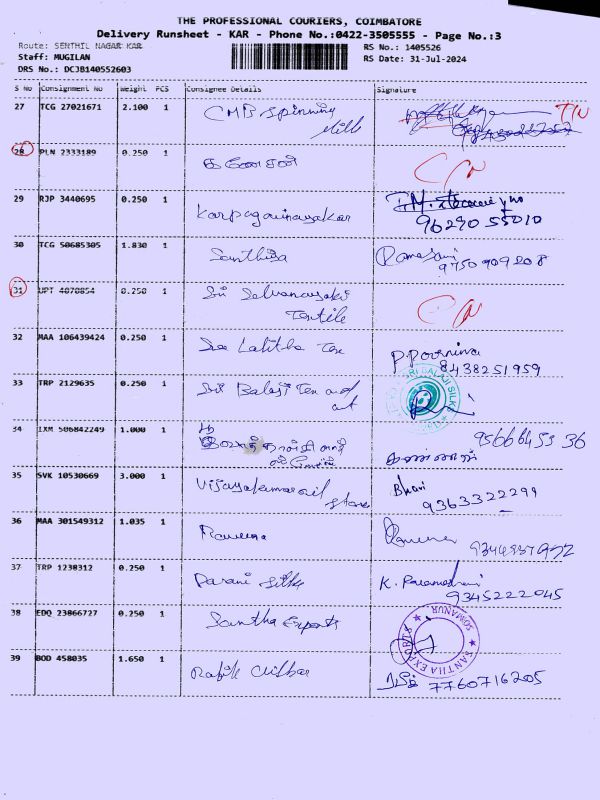 THE PROFESSIONAL COURIERS, COIMBATORE
Delivery Runsheet - KAR - Phone No.:0422-3505555 - Page No.:3
Route: SENTHIL NAGAR KAR RS No.: 1405526
Staff: MUGILAN RS Date: 31-Jul-2024
DRS No.: DCJB140552603
S No Consignment No Weight PCS Consignee Details Signature
27 TCG 27021671 2.100 1 CMB Spinning T/N
Mills
28 PLN 2333189 0.250 1 C/N
29 RJP 3440695 0.250 1 Karpagavinayakar
96290 55010
30 TCG 50685305 1.830 1 Santhiya
9750909208
31 UPT 4070854 0.250 1 Sri Selvanayaki C/N
Textile
32 MAA 106439424 0.250 1 Sree Lalitha Tex P.Poornima
8438251959
33 TRP 2129635 0.250 1 Sri Balaji Tex and SRI BALAJI SILK
34 IXM 506842249 1.000 1 95666453 36
35 SVK 10530669 3.000 1 Vijayakumar oil Bhavi
store 9363322299
36 MAA 301549312 1.035 1
37 TRP 1238312 0.250 1 Parani Silks K.
9345222045
38 EDQ 23866727 0.250 1 Santha Exports SANTHA EXPORTS SOMANUR
39 BOD 458035 1.650 1
7760716205